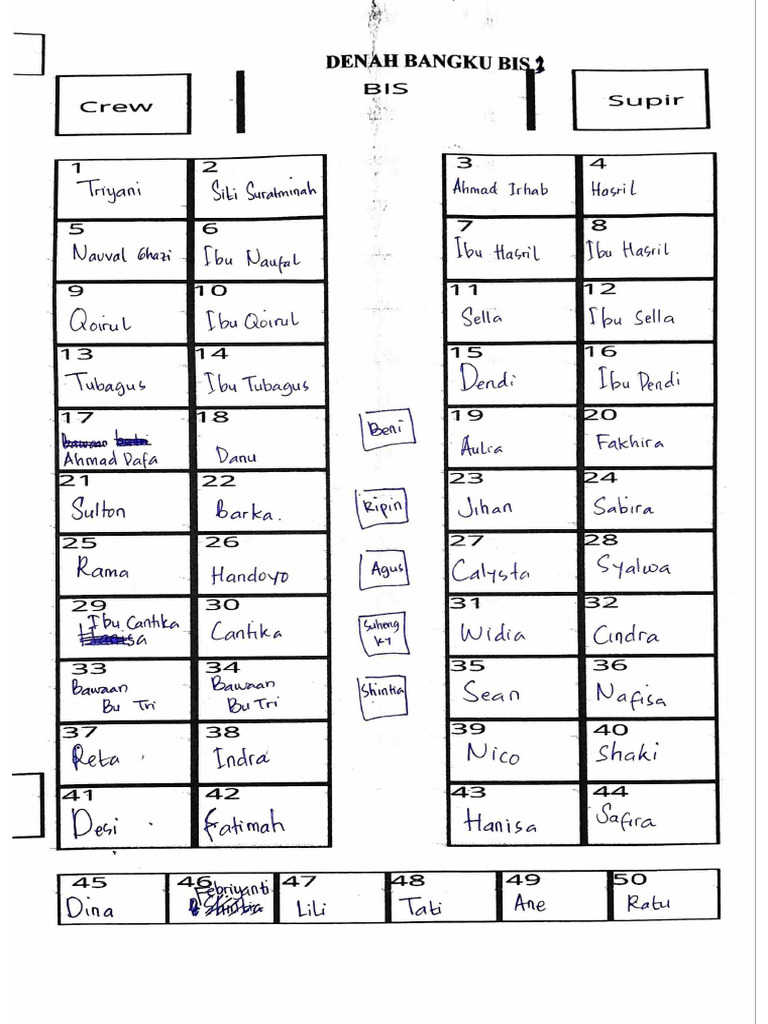 DENAH BANGKU BIS
BIS
Crew
Supir
1
Triyani
2
Siti Suratminah
3
Ahmad Irhab
4
Hasril
5
Nauval Ghazi
6
Ibu Naufal
7
Ibu Hasril
8
Ibu Hasril
9
Qoirul
10
Ibu Qoirul
11
Sella
12
Ibu Sella
13
Tubagus
14
Ibu Tubagus
15
Dendi
16
Ibu Dendi
17
Ahmad Dafa
18
Danu
Beni
19
Aulra
20
Fakhira
21
Sulton
22
Barka.
Ripin
23
Jihan
24
Sabira
25
Rama
26
Handoyo
Agus
27
Calysta
28
Syalwa
29
Ibu Cantika
30
Cantika
Suheng
Ky
31
Widia
32
Cindra
33
Bawaan
Bu Tri
34
Bawaan
Bu Tri
Shintia
35
Sean
36
Nafisa
37
Reta
38
Indra
39
Nico
40
Shaki
41
Desi
42
Fatimah
43
Hanisa
44
Safira
45
Dina
46
Febriyanti
47
Lili
48
Tati
49
Ane
50
Ratu